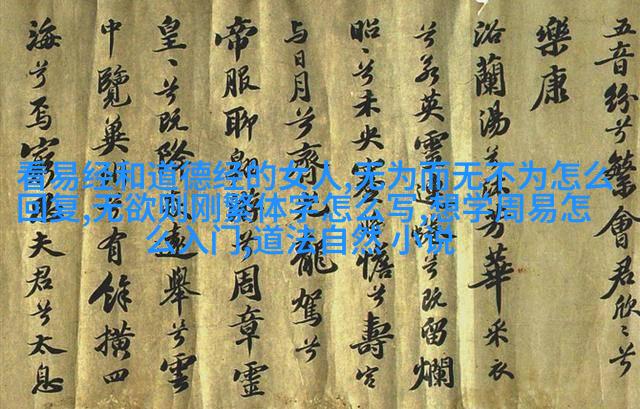 五音紛兮繁會君欣〻兮
樂康
浴蘭湯兮沐芳華采衣
兮若英靈連兮既留爛
昭〻兮未央憺兮壽宮
与日月兮齊光龍駕兮
帝服聊翱兮周章靈
皇〻兮既降遠舉兮雲
中覽冀有餘橫四
海兮焉窮夫君兮太息
看易经和道德经的女人,无为而无不为怎么
回复,无欲则刚繁体字怎么写,想学周易怎
么入门,道法自然 小说